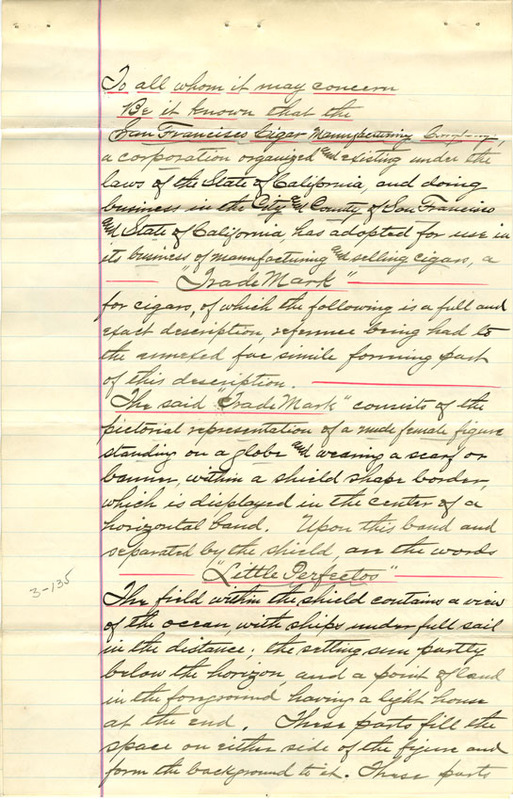 To all whom it may concern
Be it known that the
San Francisco Cigar Manufacturing Company,
a corporation organized and existing under the
laws of the State of California, and doing
business in the City and County of San Francisco
and State of California has adopted for use in
its business of manufacturing and selling cigars, a
"Trade Mark"
for cigars, of which the following is a full and
exact description, reference being had to
the annexed fac simile forming part
of this description.
The said "Trade Mark" consists of the
pictorial representation of a nude female figure
standing on a globe and wearing a scarf or
banner, within a shield shape border,
which is displayed in the center of a
horizontal band. Upon this band and
separated by the shield, are the words
"Little Perfectos"
3-135
The field within the shield contains a view
of the ocean, with ships under full sail
in the distance; the setting sun partly
below the horizon, and a point of land
in the foreground having a light house
at the end. These parts fill the
space on either side of the figure and
form the background to it. These parts